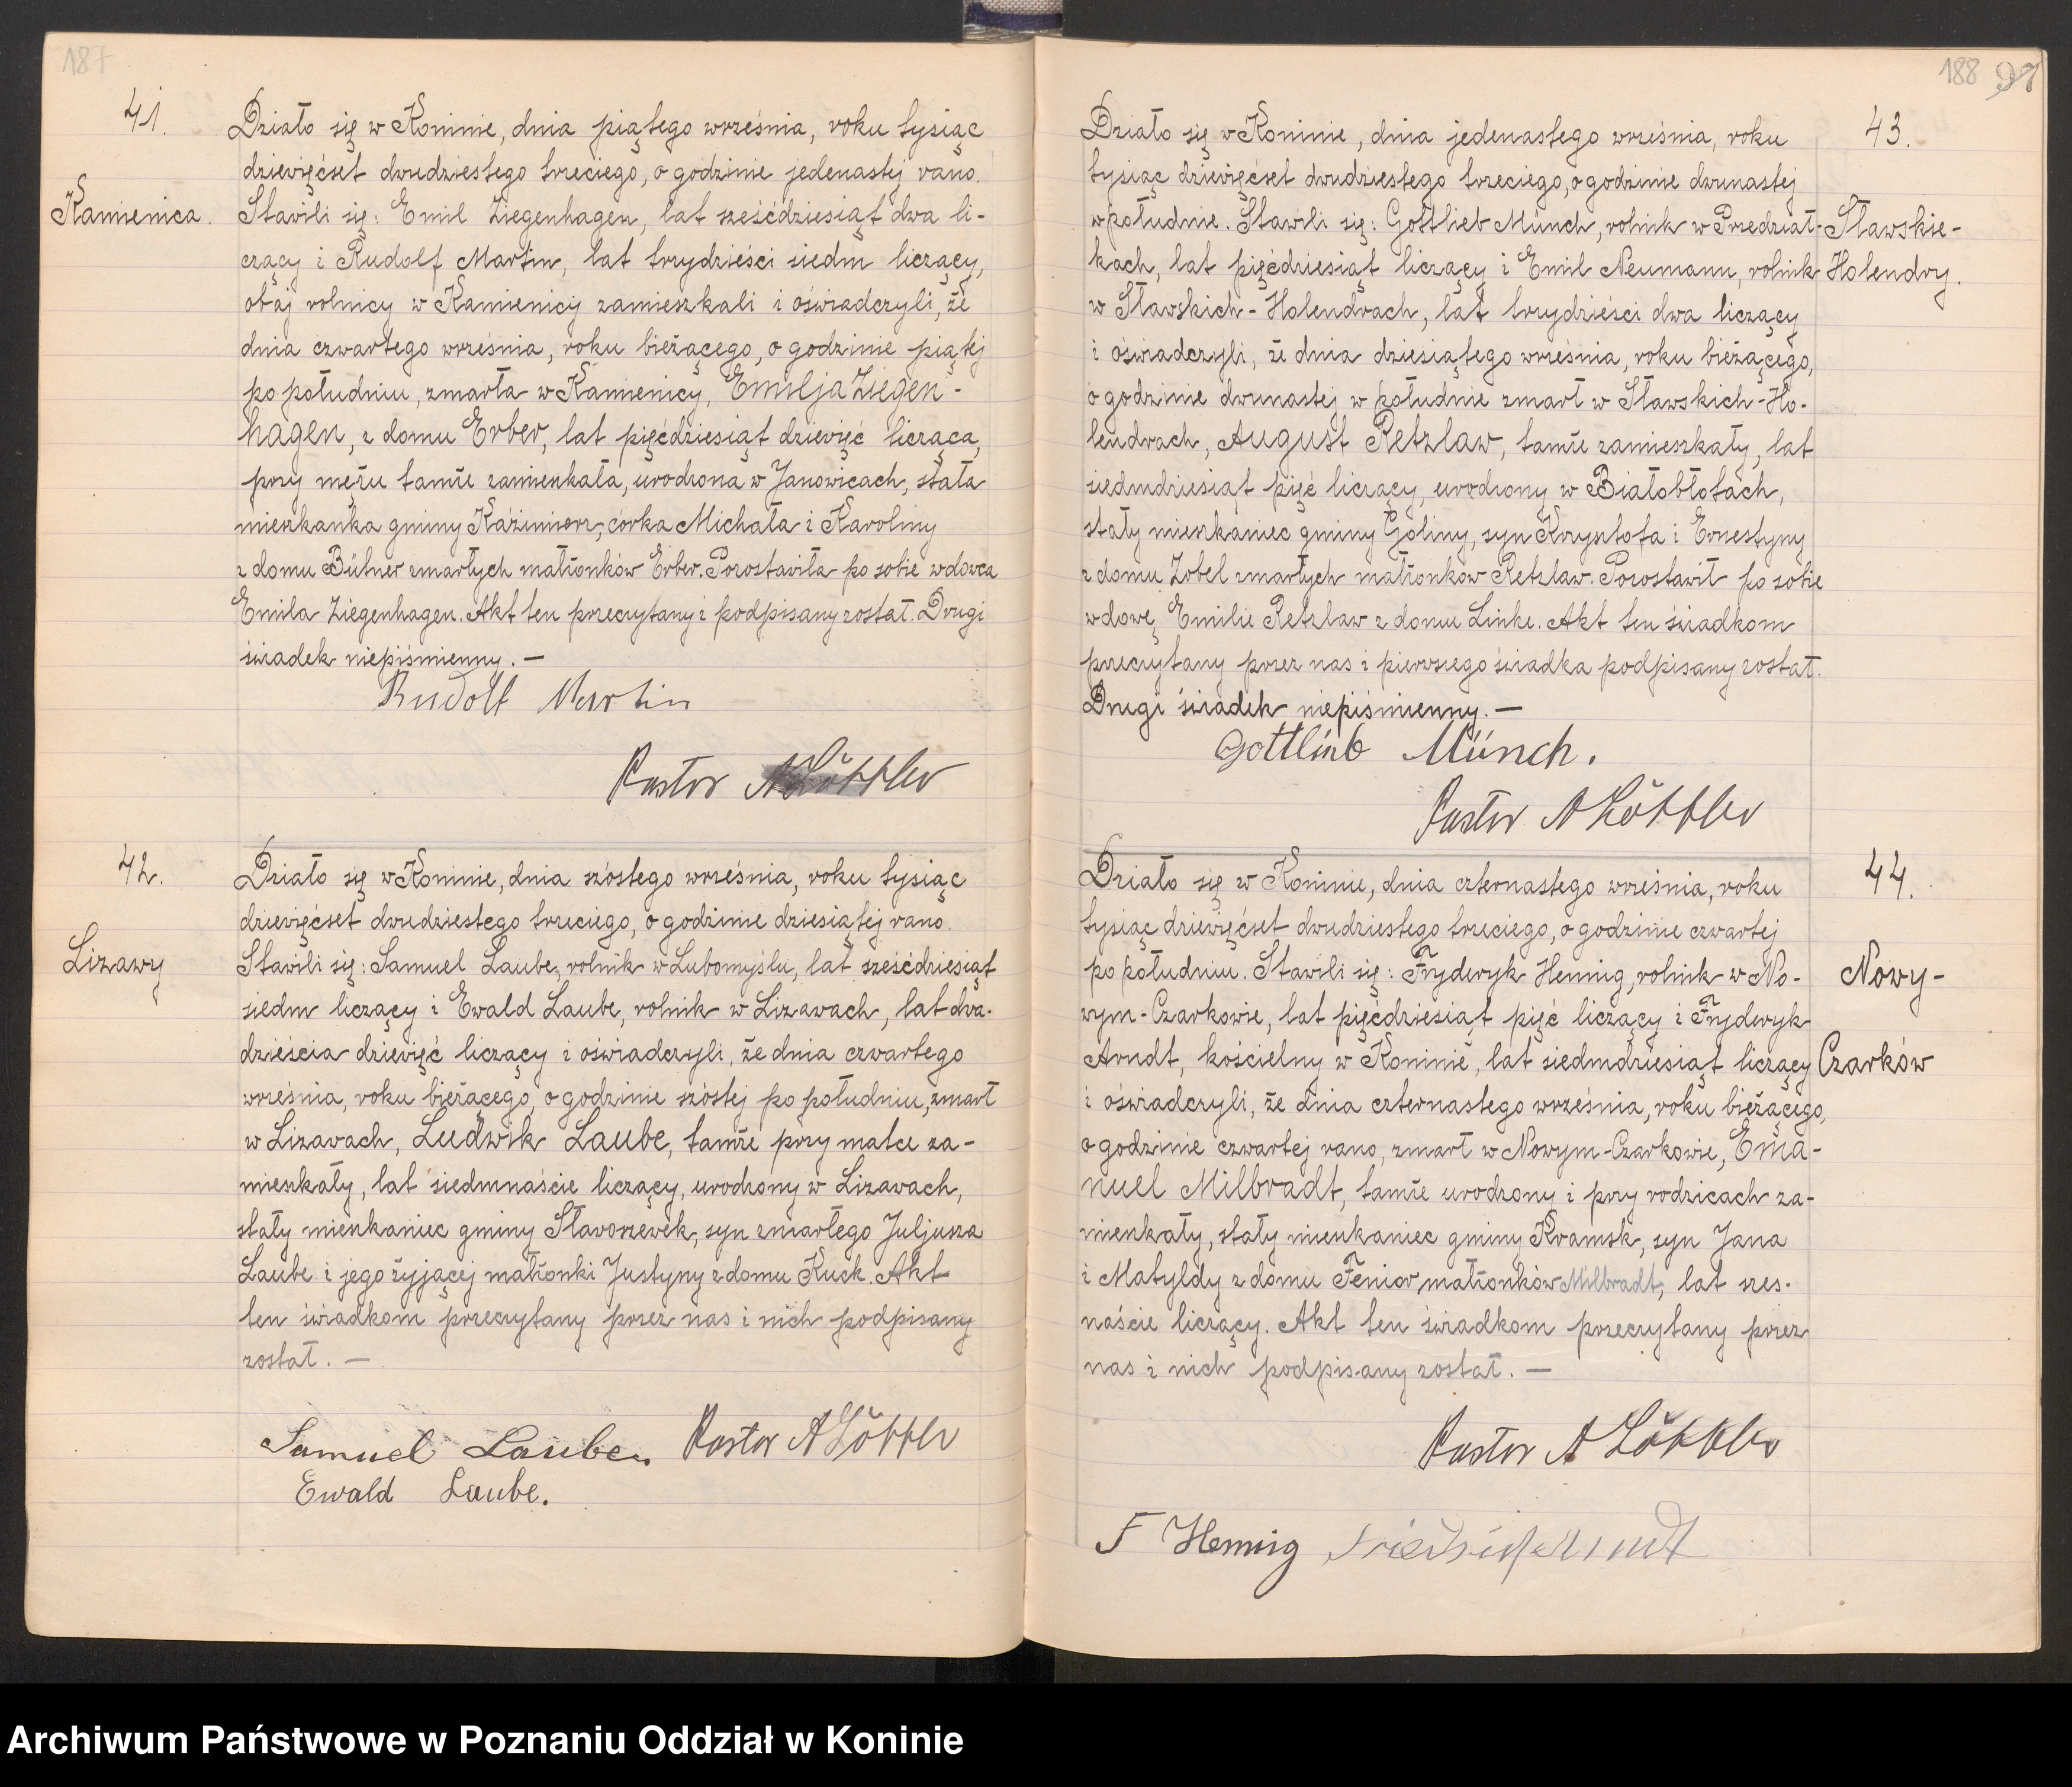 187
41.
Kamienica.
Działo się w Koninie, dnia piątego września, roku tysiąc
dziewięćset dwudziestego trzeciego, o godzinie jedenastej rano.
Stawili się: Emil Ziegenhagen, lat sześćdziesiąt dwa li-
czący i Rudolf Martin, lat trzydzieści siedm liczący,
obaj rolnicy w Kamienicy zamieszkali i oświadczyli, że
dnia czwartego września, roku bieżącego, o godzinie piątej
po południu, zmarła w Kamienicy, Emilja Ziegen-
hagen, z domu Erber, lat pięćdziesiąt dziewięć licząca,
przy mężu tamże zamieszkała, urodzona w Janowicach, stała
mieszkanka gminy Kazimierz, córka Michała i Karoliny
z domu Bütner zmarłych małżonków Erber. Pozostawiła po sobie wdowca
Emila Ziegenhagen. Akt ten przeczytany i podpisany został. Drugi
świadek niepiśmienny. —
Rudolf Martin
Pastor A Löffler
42.
Lizawy
Działo się w Koninie, dnia szóstego września, roku tysiąc
dziewięćset dwudziestego trzeciego, o godzinie dziesiątej rano.
Stawili się: Samuel Laube, rolnik w Lubomyślu, lat sześćdziesiąt
siedm liczący i Ewald Laube, rolnik w Lizawach, lat dwa-
dzieścia dziewięć liczący i oświadczyli, że dnia czwartego
września, roku bieżącego, o godzinie szóstej po południu, zmarł
w Lizawach, Ludwik Laube, tamże przy matce za-
mieszkały, lat siedmnaście liczący, urodzony w Lizawach,
stały mieszkaniec gminy Sławoszewek, syn zmarłego Juljusza
Laube i jego żyjącej małżonki Justyny z domu Kuck. Akt
ten świadkom przeczytany przez nas i nich podpisany
został. —
Samuel Laube. Pastor A Löffler
Ewald Laube.
188 97
43.
Sławskie-
Holendry.
Działo się w Koninie, dnia jedenastego września, roku
tysiąc dziewięćset dwudziestego trzeciego, o godzinie dwunastej
w południe. Stawili się: Gottlieb Münch, rolnik w Przedział-
kach, lat pięćdziesiąt liczący i Emil Neumann, rolnik
w Sławskich-Holendrach, lat trzydzieści dwa liczący
i oświadczyli, że dnia dziesiątego września, roku bieżącego,
o godzinie dwunastej w południe zmarł w Sławskich-Ho-
lendrach, August Retzlaw, tamże zamieszkały, lat
siedmdziesiąt pięć liczący, urodzony w Białobłotach,
stały mieszkaniec gminy Goliny, syn Krysztofa i Ernestyny
z domu Zobel zmarłych małżonków Retzlaw. Pozostawił po sobie
wdowę Emilie Retzlaw z domu Linke. Akt ten świadkom
przeczytany przez nas i pierwszego świadka podpisany został.
Drugi świadek niepiśmienny. —
Gottlieb Münch.
Pastor A Löffler
44.
Nowy-
Czarków
Działo się w Koninie, dnia czternastego września, roku
tysiąc dziewięćset dwudziestego trzeciego, o godzinie czwartej
po południu. Stawili się: Fryderyk Hennig, rolnik w No-
wym-Czarkowie, lat pięćdziesiąt pięć liczący i Fryderyk
Arndt, kościelny w Koninie, lat siedmdziesiąt liczący
i oświadczyli, że dnia czternastego września, roku bieżącego,
o godzinie czwartej rano, zmarł w Nowym-Czarkowie, Ema-
nuel Milbradt, tamże urodzony i przy rodzicach za-
mieszkały, stały mieszkaniec gminy Kramsk, syn Jana
i Matyldy z domu Fenior małżonków Milbradt, lat szes-
naście liczący. Akt ten świadkom przeczytany przez
nas i nich podpisany został. —
Pastor A Löffler
F Hennig Friedrich Arndt
Archiwum Państwowe w Poznaniu Oddział w Koninie